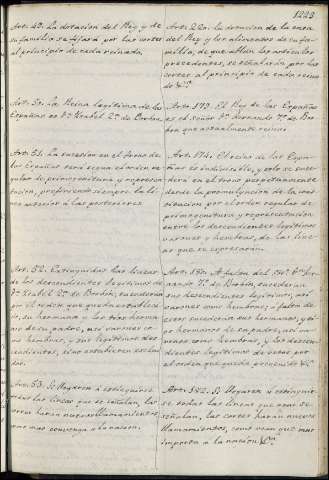 1223
Art. 49. La dotacion del Rey y de
su familia se fijará por las cortes
al principio de cada reinado.
Art. 50. La Reina legítima de las
Españas es Dª Ysabel 2ª de Borbon.
Art. 51. La sucesion en el trono de
las Españas será segun el orden re-
gular de primogenitura y represen-
tacion, prefiriendo siempre la lí-
nea anterior á las posteriores.
Art. 52. Extinguidas las lineas
de los descendientes legítimos de
Dª Ysabel 2ª de Borbon, sucederan
por el orden que queda estableci-
do, su hermana y los tios herma-
nos de su padre, asi varones co-
mo hembras, y sus legítimos des-
cendientes, sino estubieren esclui-
dos.
Art. 53. Si llegaren á estinguirse
todas las lineas que se señalan, las
cortes harán nuevos llamamientos,
como mas convenga á la nacion.
Art. 22. La dotacion de la casa
del Rey y los alimentos de su fa-
milia, de que ablan los articulos
precedentes, se señalarán por las
cortes al principio de cada reina-
do &ª.
Art. 179. El Rey de las Españas
es el señor Dn Fernando 7º de Bor-
bon que actualmente reina.
Art. 174. El reino de las Espa-
ñas es indivisible, y solo se suce-
derá en el trono perpetuamente
desde la promulgacion de la cons-
titucion por el orden regular de
primogenitura y representacion
entre los descendientes legítimos
varones y hembras, de las line-
as que se espresarán.
Art. 180. A falta del Sr. Dn Fer-
nando 7º de Borbon, sucederán
sus descendientes legítimos, asi
varones como hembras; á falta de
estos sucederán sus hermanos, y ti-
os hermanos de su padre, asi varo-
nes como hembras, y los descen-
dientes legítimos de estos por
el orden que queda prevenido &ª.
Art. 182. Si llegaren á estinguir-
se todas las lineas que aqui se
señalan, las cortes harán nuevos
llamamientos, como vean que mas
importa á la nacion &ª.